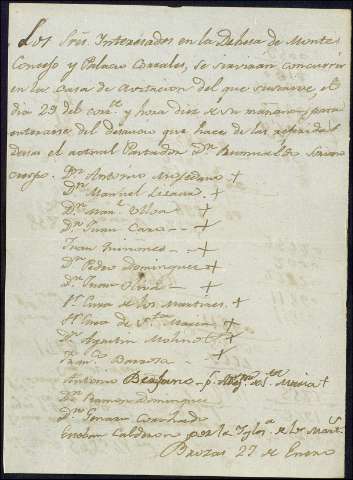 Los Srēs. Interesados en la Dehesa de Montes
Concejo y Palacio Corrales, se serviran concurrir
en la Casa de Avitacion del que suscrive, el
dia 29 del corrte. y hora diez de su mañana, para
enterarse del desaucio que hace de las
Desa el actual Dn. Rumualdo
Crespo. Dn. Antonio +
Dn. Manuel Lizaur +
Dn. Manl. Ulloa +
Dn. Juan Caro - - +
Juan Quiñones - - +
Dn. Pedro Dominguez +
Dn. Juan Oliva - +
Sr. Cura de los Martires +
Sr. Cura de Sta. Maria +
Dn. Agustin Molino +
Franco. Barroza +
Antonio p. de Sta. Maria +
Dn. Ramon Dominguez
Dn. Genaro
Esteban Calderon por la Iglesa. de los Mart.
Brozas 27 de Enero